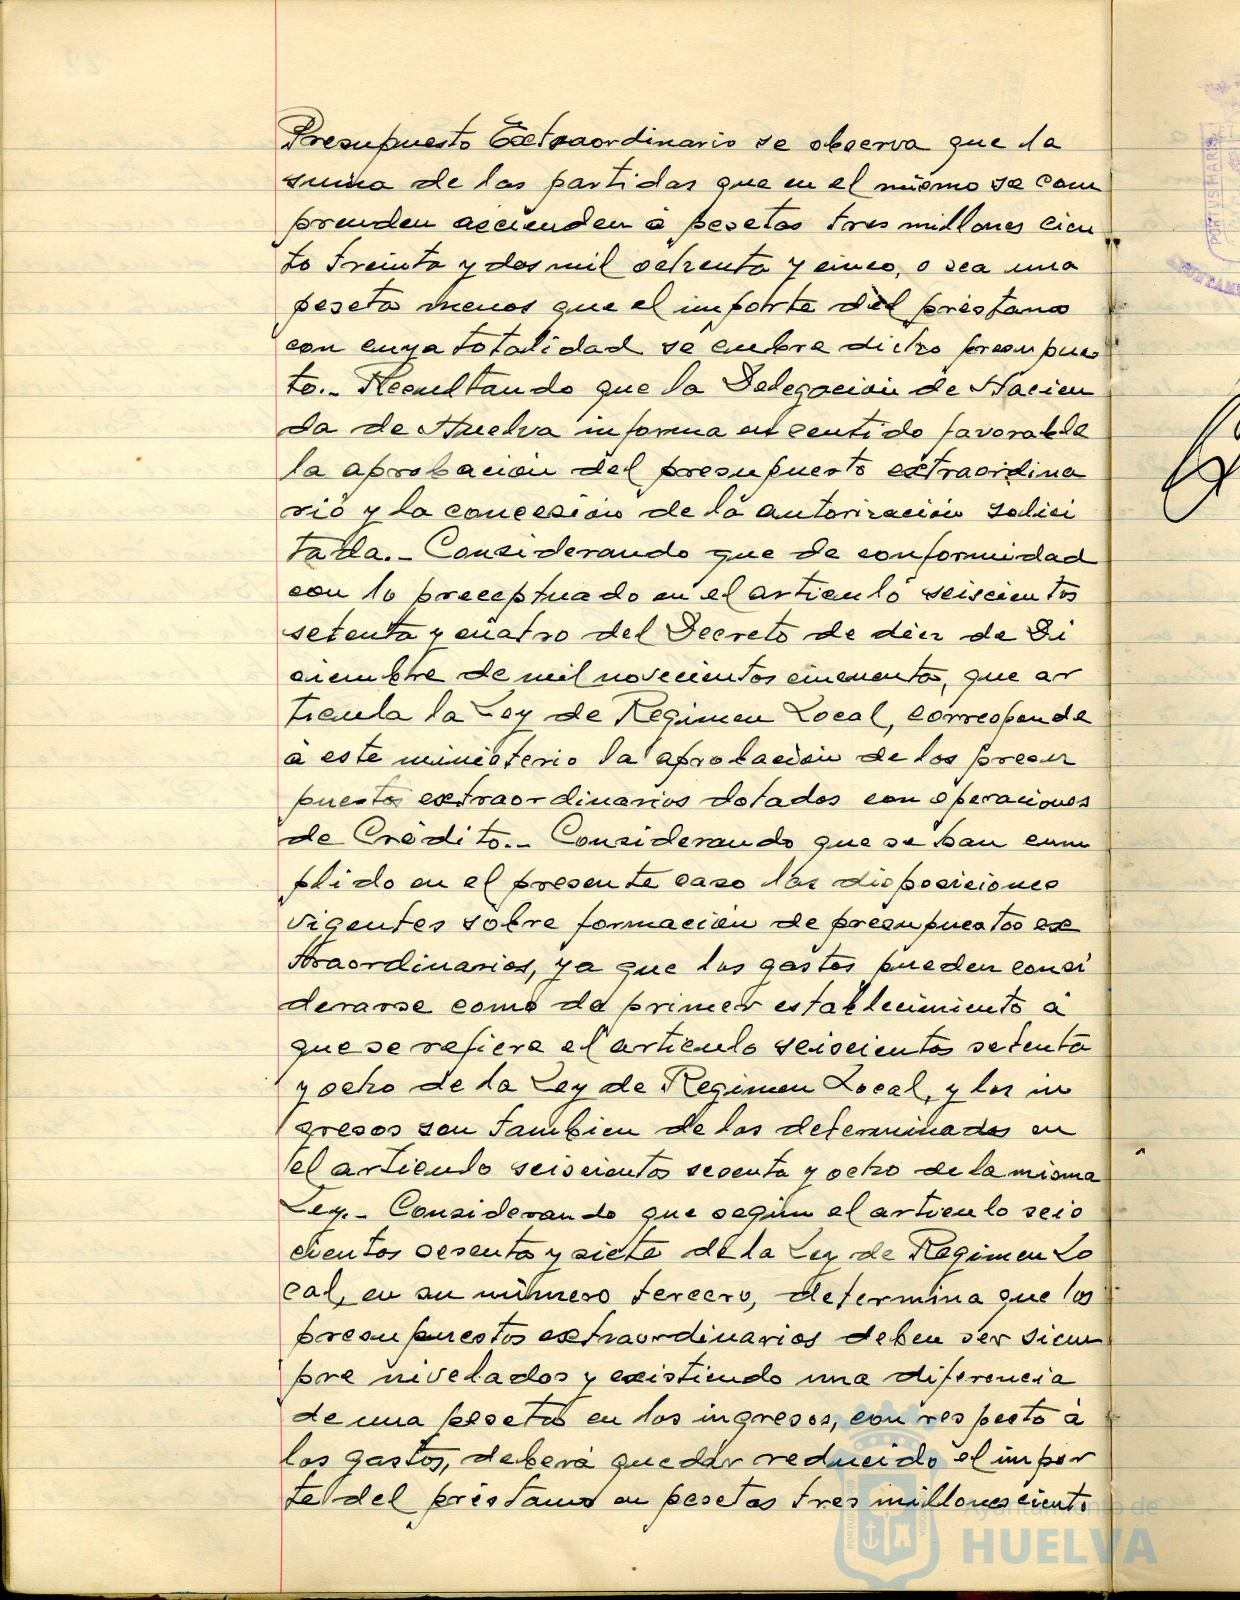 Presupuesto Extraordinario se observa que la
suma de las partidas que en el mismo se com
prenden ascienden á pesetas tres millones cien
to treinta y dos mil ochenta y cinco, o sea una
peseta menos que el importe del préstamo
con cuya totalidad se cubre dicho presupues
to.- Resultando que la Delegación de Hacien
da de Huelva informa en sentido favorable
la aprobación del presupuesto extraordina
rio y la concesión de la autorización solici
tada.- Considerando que de conformidad
con lo preceptuado en el articulo seiscientos
setenta y cuatro del Decreto de diez de Di
ciembre de mil novecientos cincuenta, que ar
ticula la Ley de Regimen Local, corresponde
á este ministerio la aprobación de los presu
puestos extraordinarios dotados con operaciones
de Crédito.- Considerando que se han cum
plido en el presente caso las disposiciones
vigentes sobre formación de presupuestos ex
traordinarios, ya que los gastos pueden consi
derarse como de primer establecimiento á
que se refiere el articulo seiscientos setenta
y ocho de la Ley de Regimen Local, y los in
gresos son tambien de los determinados en
el articulo seiscientos sesenta y ocho de la misma
Ley.- Considerando que según el articulo seis
cientos sesenta y siete de la Ley de Regimen Lo
cal, en su número tercero, determina que los
presupuestos extraordinarios deben ser siem
pre nivelados y existiendo una diferencia
de una peseta en los ingresos, con respecto á
los gastos, deberá quedar reducido el impor
te del préstamo en pesetas tres millones ciento
Ayuntamiento de
HUELVA